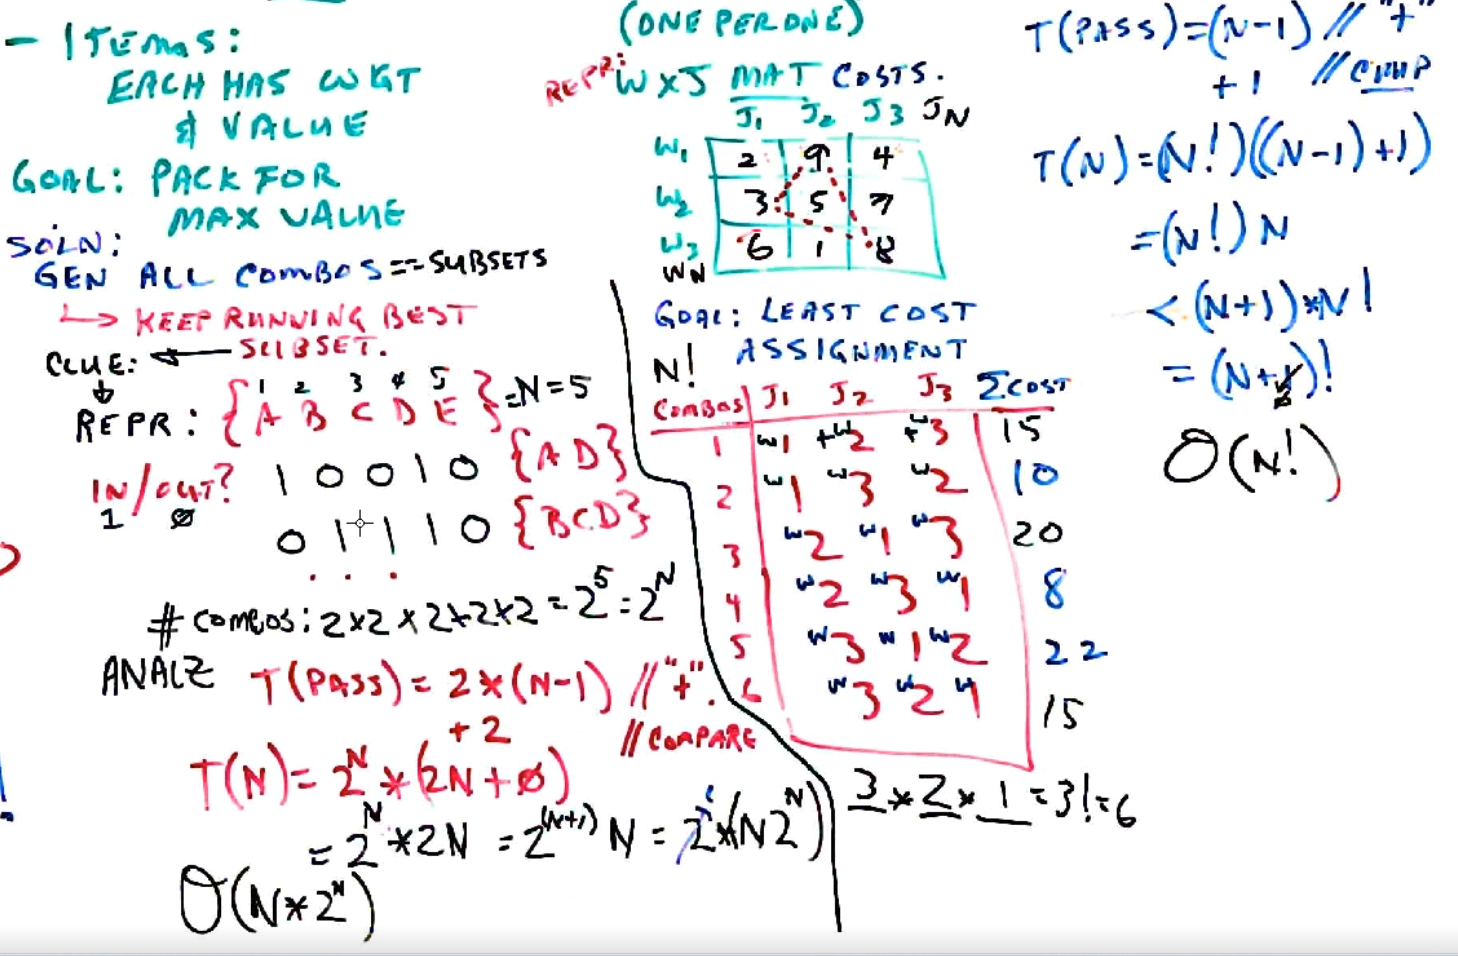 - ITEMS:
EACH HAS WGT
& VALUE
GOAL: PACK FOR
MAX VALUE
SOLN:
GEN ALL COMBOS == SUBSETS
↳ KEEP RUNNING BEST
SUBSET.
CLUE:
1 2 3 4 5
REPR: {A B C D E} = N = 5
IN/OUT? 1 0 0 1 0 {AD}
1 0
0 1 1 1 0 {BCD}
. . .
# COMBOS: 2x2x2x2x2 = 2^5 = 2^N
ANALZ T(PASS) = 2*(N-1) // "+".
+ 2 // COMPARE
T(N) = 2^N * (2N + 0)
= 2^N * 2N = 2^(N+1) N = 2 * (N2^N)
O(N*2^N)
(ONE PER ONE)
REPR: W x J MAT COSTS.
J1 J2 J3 JN
W1 2 9 4
W2 3 5 7
W3 6 1 8
WN
GOAL: LEAST COST
ASSIGNMENT
N!
COMBOS J1 J2 J3 ΣCOST
1 W1 +W2 +W3 15
2 W1 W3 W2 10
3 W2 W1 W3 20
4 W2 W3 W1 8
5 W3 W1 W2 22
6 W3 W2 W1 15
3 * 2 * 1 = 3! = 6
T(PASS) = (N-1) // "+"
+1 // CMP
T(N) = (N!)((N-1)+1)
= (N!) N
< (N+1)*N!
= (N+1)!
O(N!)